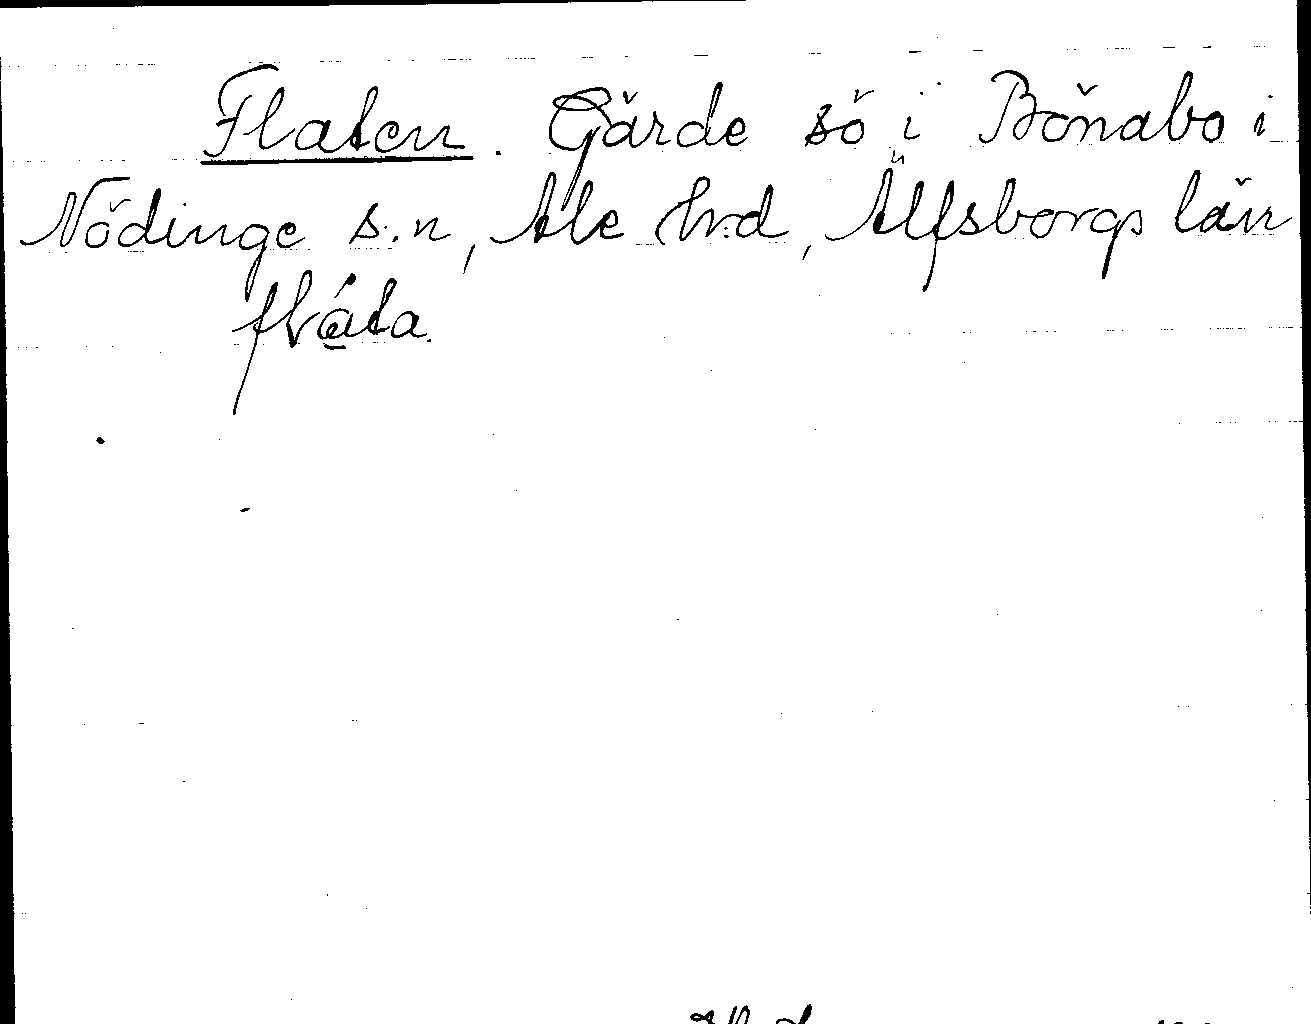 Flaten. Gärde sö i Bönabo i
Nödinge s.n, Ale hrd, Älfsborgs län
flata.